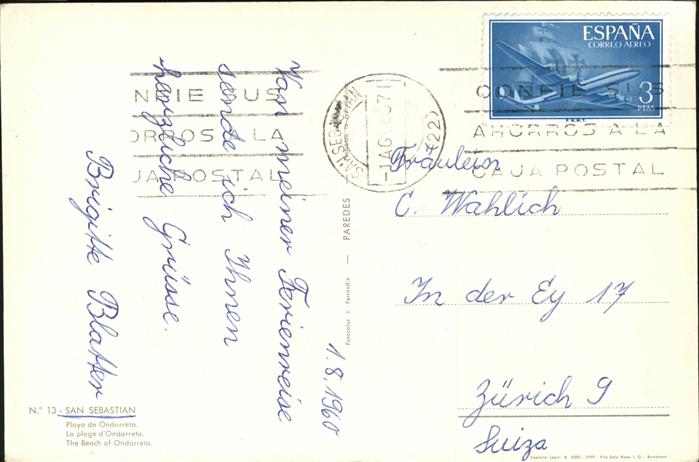 Von meiner Ferienreise
sende ich Ihnen
herzliche Grüsse.
Brigitte Blatter
1.8.1960
Fräulein
C. Wahlich
In der Ey 17
Zürich 9
Suiza
ESPAÑA
CORREO AEREO
3
PTAS
F.N.M.T.
CONFIE SUS
AHORROS A LA
CAJA POSTAL
NFIE SUS
ORROS A LA
JA POSTAL
SAN SEBASTIAN
Fotocolor J. Ferrándiz — PAREDES
N.º 13 - SAN SEBASTIAN
Playa de Ondarreta.
La plage d'Ondarreta.
The Beach of Ondarreta.